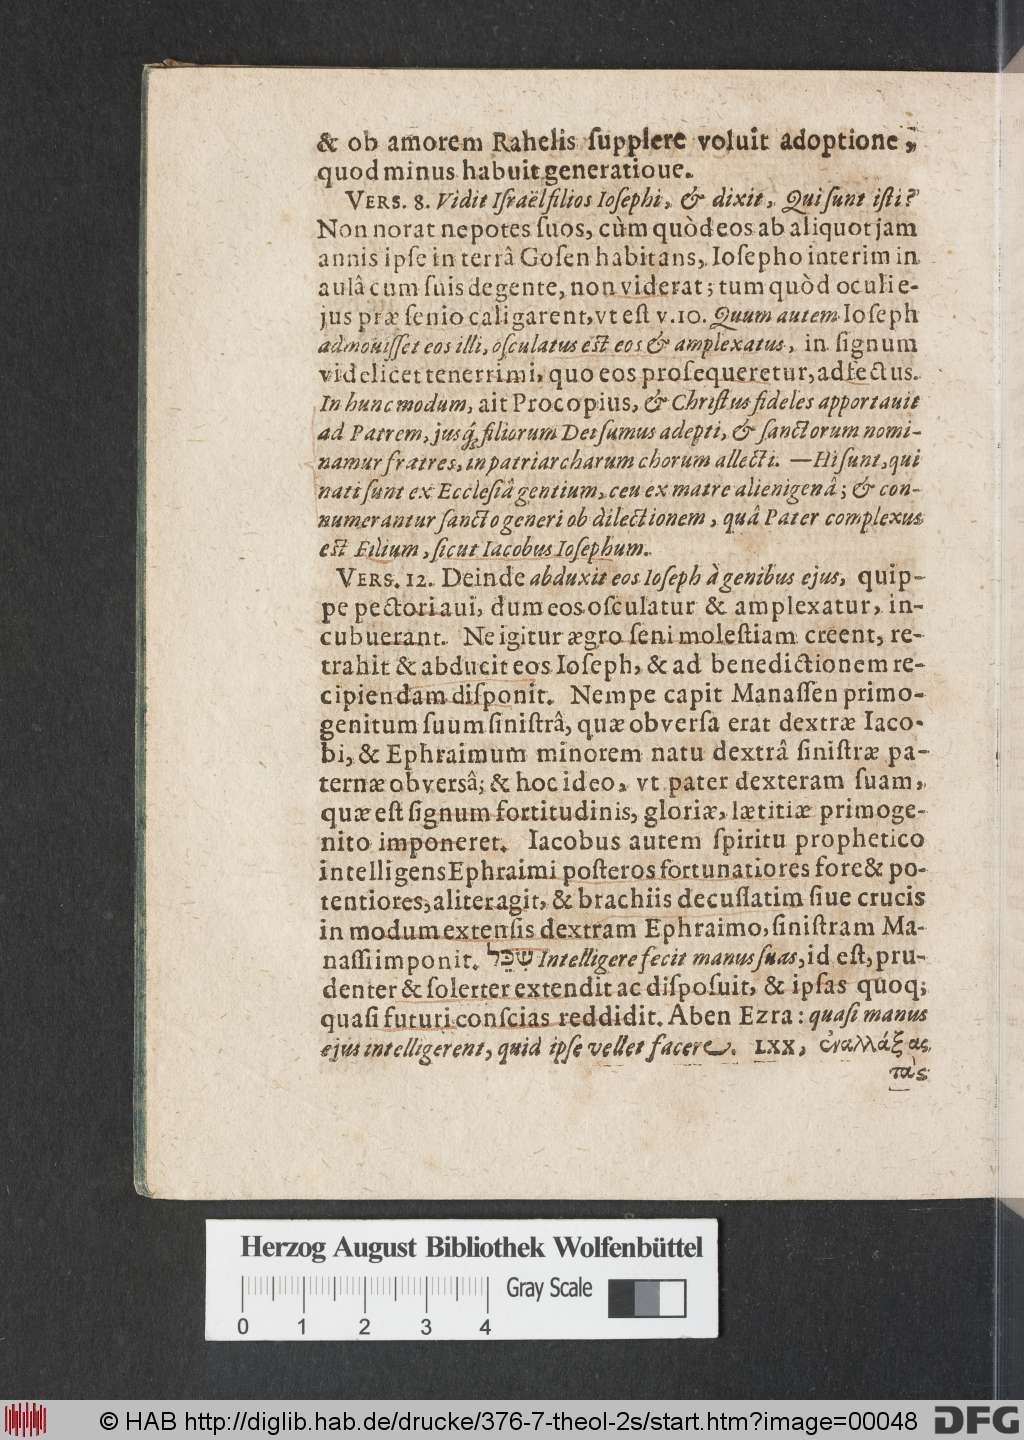 & ob amorem Rahelis ſupplere voluit adoptione,
quod minus habuit generatioue.
VERS. 8. Vidit Iſraël filios Ioſephi, & dixit, Qui ſunt iſti?
Non norat nepotes ſuos, cùm quòd eos ab aliquot jam
annis ipſe in terrâ Goſen habitans, Ioſepho interim in
aulâ cum ſuis degente, non viderat; tum quòd oculi e-
jus præ ſenio caligarent, vt eſt v. 10. Quum autem Ioſeph
admouiſſet eos illi, oſculatus eſt eos & amplexatus, in ſignum
videlicet tenerrimi, quo eos proſequeretur, adfectus.
In hunc modum, ait Procopius, & Chriſtus fideles apportauit
ad Patrem, jusq́ filiorum Dei ſumus adepti, & ſanctorum nomi-
namur fratres, in patriarcharum chorum allecti. —Hi ſunt, qui
nati ſunt ex Eccleſiâ gentium, ceu ex matre alienigenâ; & con-
numerantur ſancto generi ob dilectionem, quâ Pater complexus
eſt Filium, ſicut Iacobus Ioſephum.
VERS. 12. Deinde abduxit eos Ioſeph à genibus ejus, quip-
pe pectori aui, dum eos oſculatur & amplexatur, in-
cubuerant. Ne igitur ægro ſeni moleſtiam creent, re-
trahit & abducit eos Ioſeph, & ad benedictionem re-
cipiendam diſponit. Nempe capit Manaſſen primo-
genitum ſuum ſiniſtrâ, quæ obverſa erat dextræ Iaco-
bi, & Ephraimum minorem natu dextrâ ſiniſtræ pa-
ternæ obversâ; & hoc ideo, vt pater dexteram ſuam,
quæ eſt ſignum fortitudinis, gloriæ, lætitiæ primoge-
nito imponeret. Iacobus autem ſpiritu prophetico
intelligens Ephraimi poſteros fortunatiores fore & po-
tentiores, aliter agit, & brachiis decuſſatim ſiue crucis
in modum extenſis dextram Ephraimo, ſiniſtram Ma-
naſſi imponit. שִׂכֵּל Intelligere fecit manus ſuas, id eſt, pru-
denter & ſolerter extendit ac diſpoſuit, & ipſas quoq;
quaſi futuri conſcias reddidit. Aben Ezra: quaſi manus
ejus intelligerent, quid ipſe vellet facere. LXX, ἐναλλάξας
τὰς
Herzog August Bibliothek Wolfenbüttel
Gray Scale
0 1 2 3 4
© HAB http://diglib.hab.de/drucke/376-7-theol-2s/start.htm?image=00048
DFG